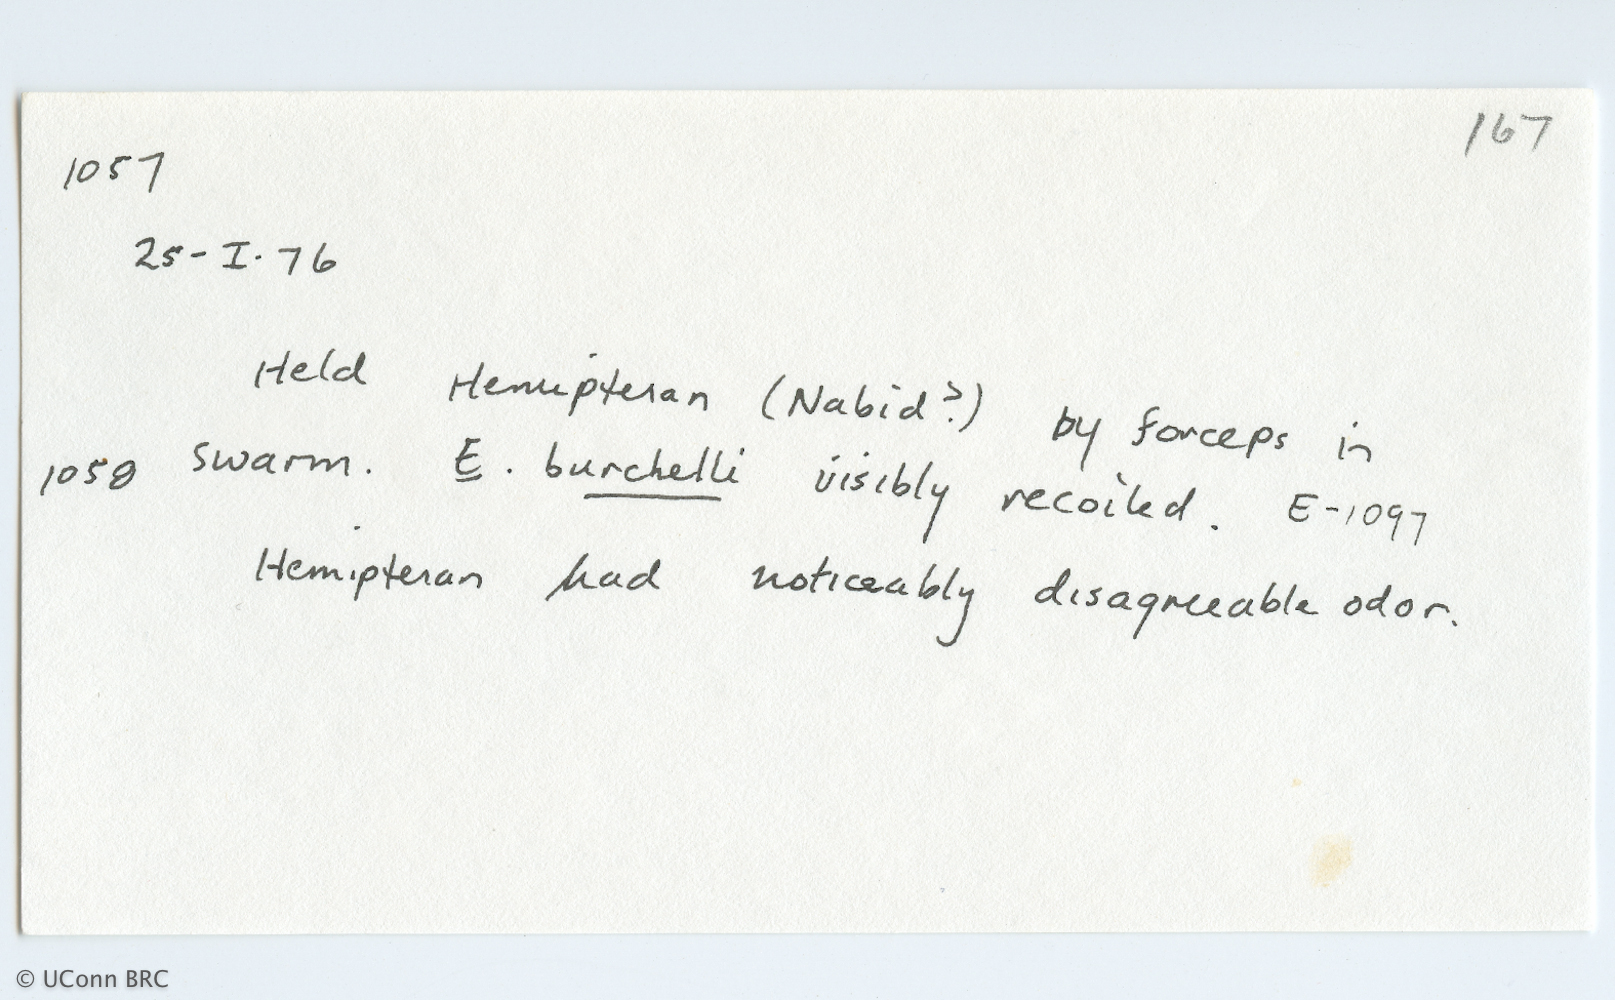 167
1057
25-I.76
Held Hemipteran (Nabid?) by forceps in
1058 swarm. E. burchelli visibly recoiled. E-1097
Hemipteran had noticeably disagreeable odor.
© UConn BRC